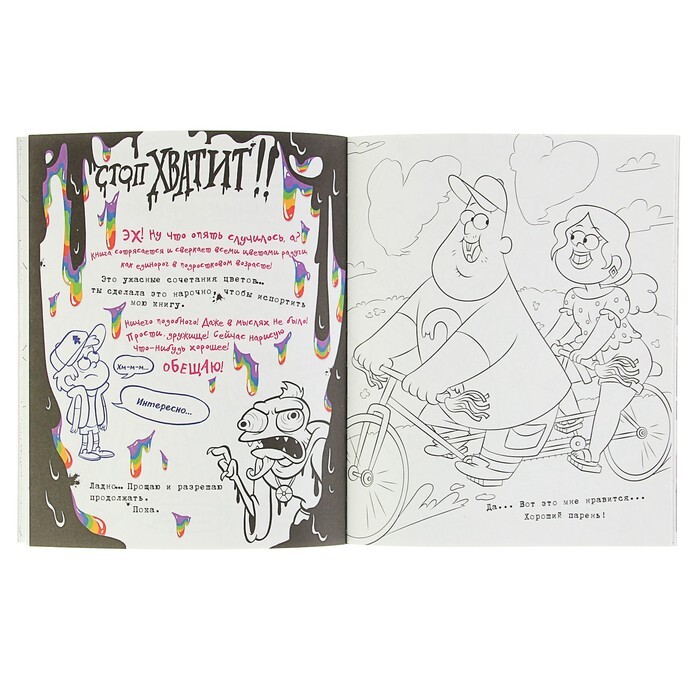 СТОП ХВАТИТ!!
ЭХ! Ну что опять случилось, а?
Книга сотрясается и сверкает всеми цветами радуги
как единорог в подростковом возрасте!
Это ужасные сочетания цветов...
ты сделала это нарочно, чтобы испортить
мою книгу.
Ничего подобного! Даже в мыслях не было!
Прости, дружище! Сейчас нарисую
что-нибудь хорошее!
ОБЕЩАЮ!
Хм-м-м...
Интересно...
Ладно... Прощаю и разрешаю
продолжать.
Пока.
Да... Вот это мне нравится...
Хороший парень!